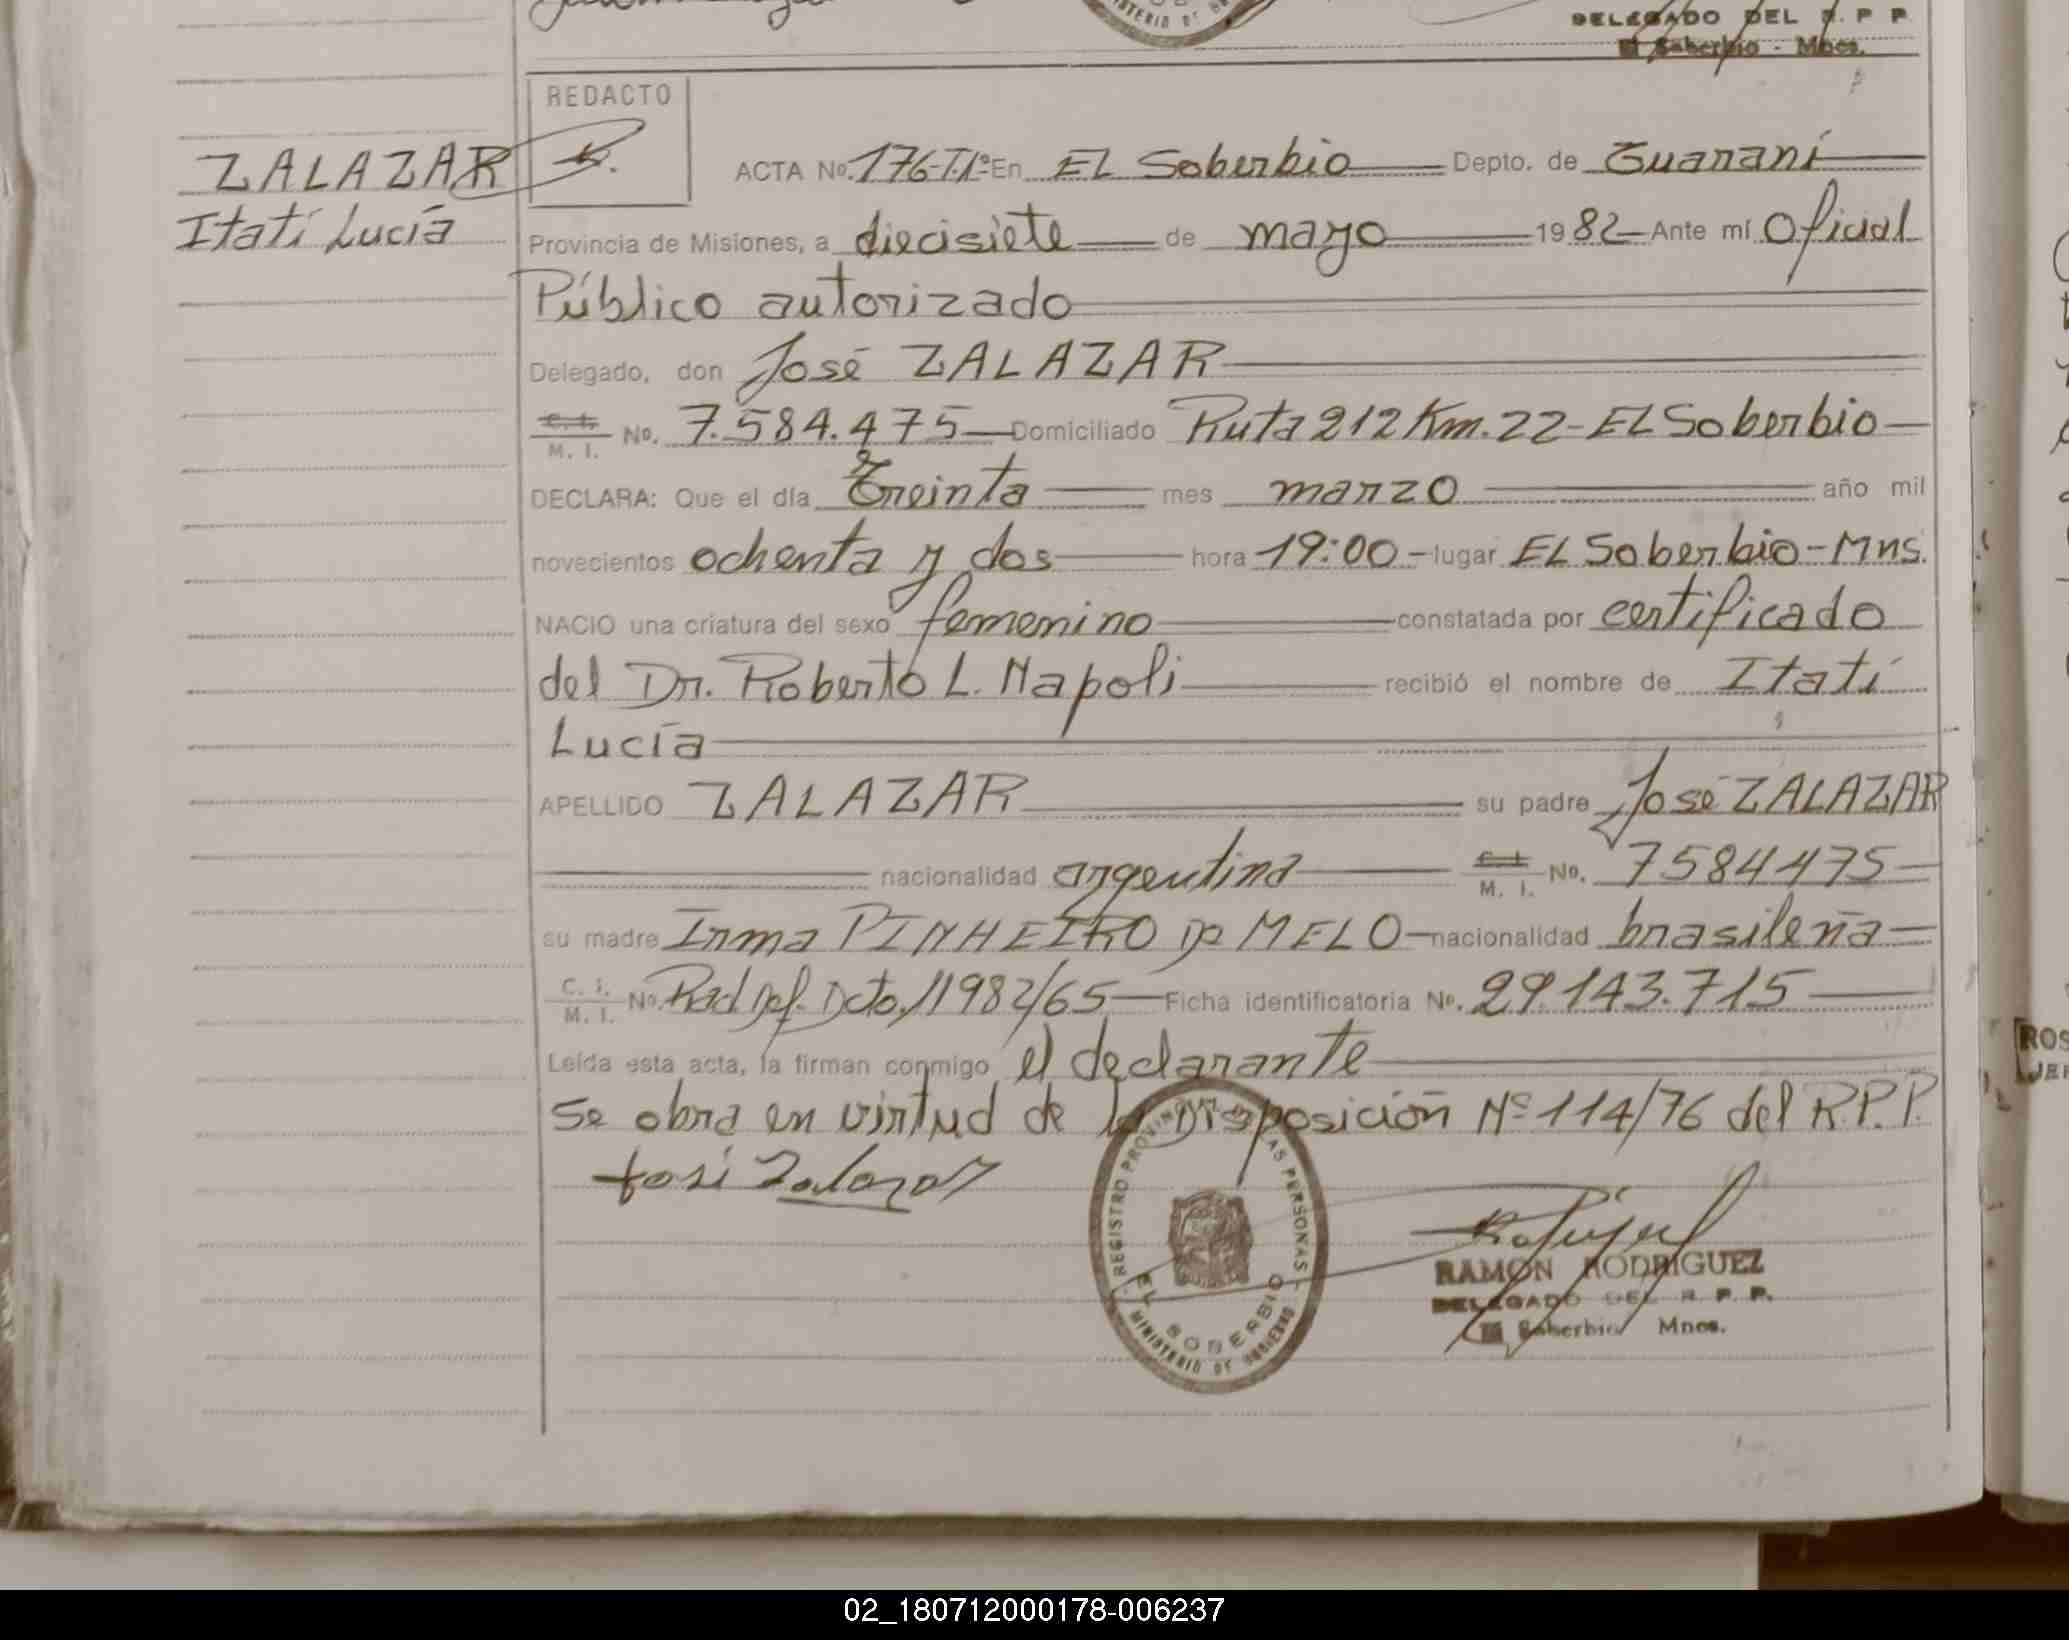 DELEGADO DEL R. P P.
El Soberbio - Mnes.
REDACTO
ZALAZAR
Itatí Lucía
ACTA No. 176-T.1º En EL Soberbio Depto. de Guaraní
Provincia de Misiones, a diecisiete de mayo 1982 Ante mí Oficial
Público autorizado
Delegado, don José ZALAZAR
C. I.
M. I. No. 7.584.475 Domiciliado Ruta 212 Km. 22 - EL Soberbio
DECLARA: Que el día Treinta mes marzo año mil
novecientos ochenta y dos hora 19:00 - lugar EL Soberbio - Mns.
NACIO una criatura del sexo femenino constatada por certificado
del Dr. Roberto L. Napoli recibió el nombre de Itatí
Lucía
APELLIDO ZALAZAR su padre José ZALAZAR
nacionalidad argentina C. I.
M. I. No. 7584475
su madre Irma PINHEIRO De MELO - nacionalidad brasileña
C. I.
M. I. No. Rad Def. Dcto. 11982/65 Ficha identificatoria No. 29.143.715
Leída esta acta, la firman conmigo el declarante
Se obra en virtud de la Disposición Nº 114/76 del R.P.P.
José Zalazar
REGISTRO PROVINCIAL DE LAS PERSONAS
EL SOBERBIO
MINISTERIO DE GOBIERNO
RAMON RODRIGUEZ
DELEGADO DEL R. P. P.
El Soberbio Mnes.
ROS
JEF
02_180712000178-006237